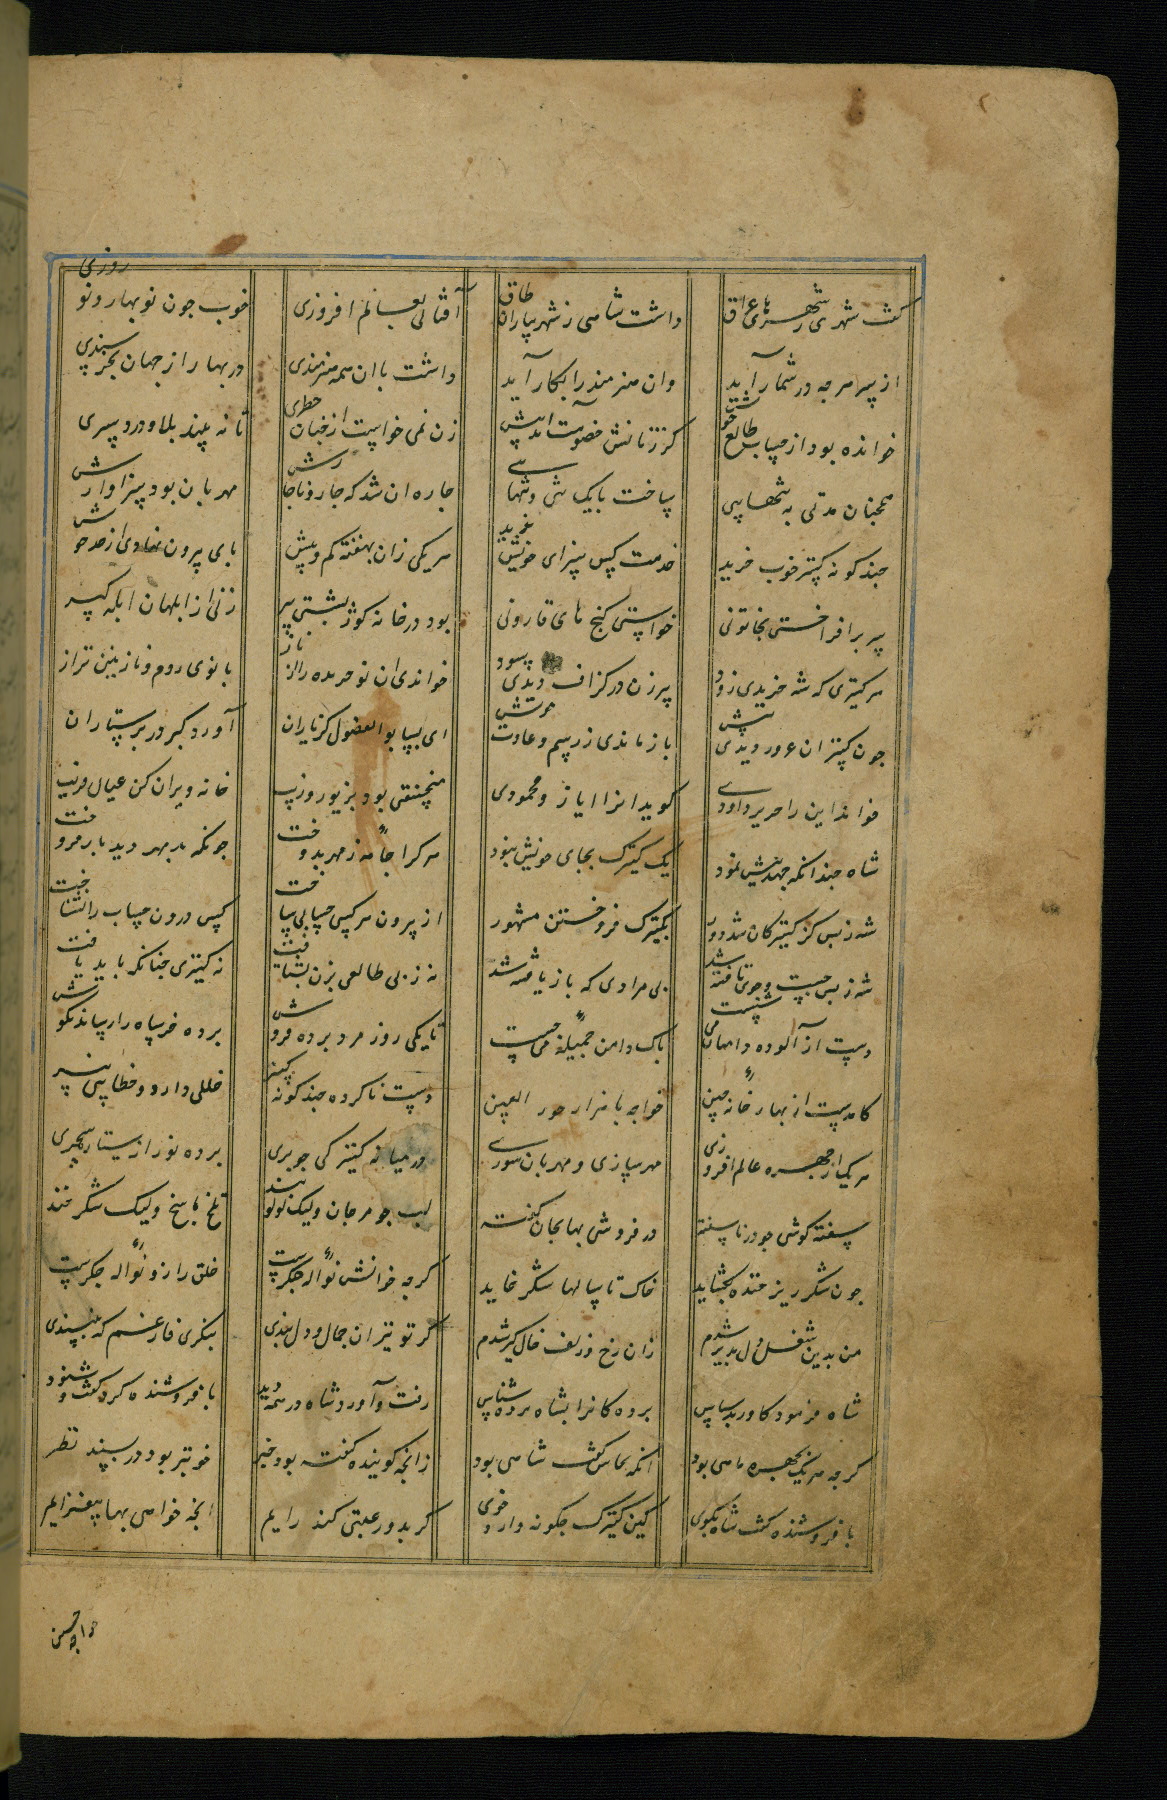 کفت شهری ز شهرهای عراق داشت شاهی ز شهریاران طاق آفتابی بعالم افروزی خوب چون نوبهار نوروزی
از هنر هرچه در شمار آید وان هنرمند را بکار آید داشت با آن همه هنرمندی در بهار از جهان بخرسندی
خوانده بود از حساب طالع خویش کز زنانش خصومت آید پیش زن نمی خواست از چنان خطری تا نه بیند بلا و درد سری
همچنان مدتی به تنهایی ساخت با یک تنی و تنهایی چاره آن شد که چار و ناچارش مهربان بود سزاوارش
چند کونه کنیز خوب خرید خدمت کس سزای خویش ندید هر یکی زان بهفته کم و بیش پای بیرون نهادی از حد خویش
سر برافراختی بخاتونی خواستی کنج های قارونی بود در خانه کوژ پشتی پیر زنی از ابلهان ابله کیر
هر کنیزی که شه خریدی زود پیرزن در کزاف دیدی سود خواندی آن نو خریده را از ناز بانوی روم و نازنین تراز
چون کنیز آن غرور دیدی پیش باز ماندی ز رسم و عادت خویش ای بسا بوالفضول کز یاران آورد کبر در پرستاران
خواند این را حریر داودی کوید آنرا ایاز و محمودی منجنیقی بود بزیور و زیب خانه ویران کن عیال فریب
شاه چندانکه جهد بیش نمود یک کنیزک بجای خویش نبود هر کرا جامهٔ ز مهر بدوخت چونکه بد مهر دید باز فروخت
شه ز بس کز کنیزکان شد دور بکنیزک فروختن مشهور از برون هر کس حسابی ساخت کس درون حساب را نشناخت
شه ز بس جست و جوی تافته شد بی مرادی که باز یافته شد نه ز بی طالعی بزن بشتافت نه کنیزی چنانکه باید یافت
دست از آلوده دامنان می شست پاک دامن جمیلهٔ می جست تا یکی روز مرد برده فروش برده خر شاه را رساند بکوش
کامدست از بهار خانهٔ چین خواجه با هزار حور العین دست ناکرده چند کونه کنیز خلخی دارد و خطایی نیز
هر یک از چهره عالم افروزی مهر سازی و مهربان سوزی در میانه کنیزکی چو پری برده نور از ستاره سحری
سفته کوشی چو در ناسفته در فروشش بها بجان کفته لب چو مرجان ولیک لولو بند تلخ پاسخ ولیک شکر خند
چون شکر ریز خنده بکشاید خاک تا سالها شکر خاید کرچه خوانش نوالهٔ جکرست خلق را زو نوالهٔ جکرست
من بدین شغل دل پذیر شدم زان رخ و زلف خال کیر شدم کر تو نیز آن جمال و دل بندی بنکری فارغم که بپسندی
شاه فرمود کاورد بسپاس برده کانرا بشاه برده شناس رفت و آورد و شاه در همه دید با فروشنده کرد کفت و شنود
کرچه هر یک بچهره ماهی بود آنکه نخاس کفت شاهی بود زانچه کوینده کفته بود خبر خوبتر بود در پسند نظر
با فروشنده کفت شاه بکوی کین کنیزک چکونه دارد خوی کر بدو رغبتی کند رایم آنچه خواهی بها بیفزایم
خواجه چین